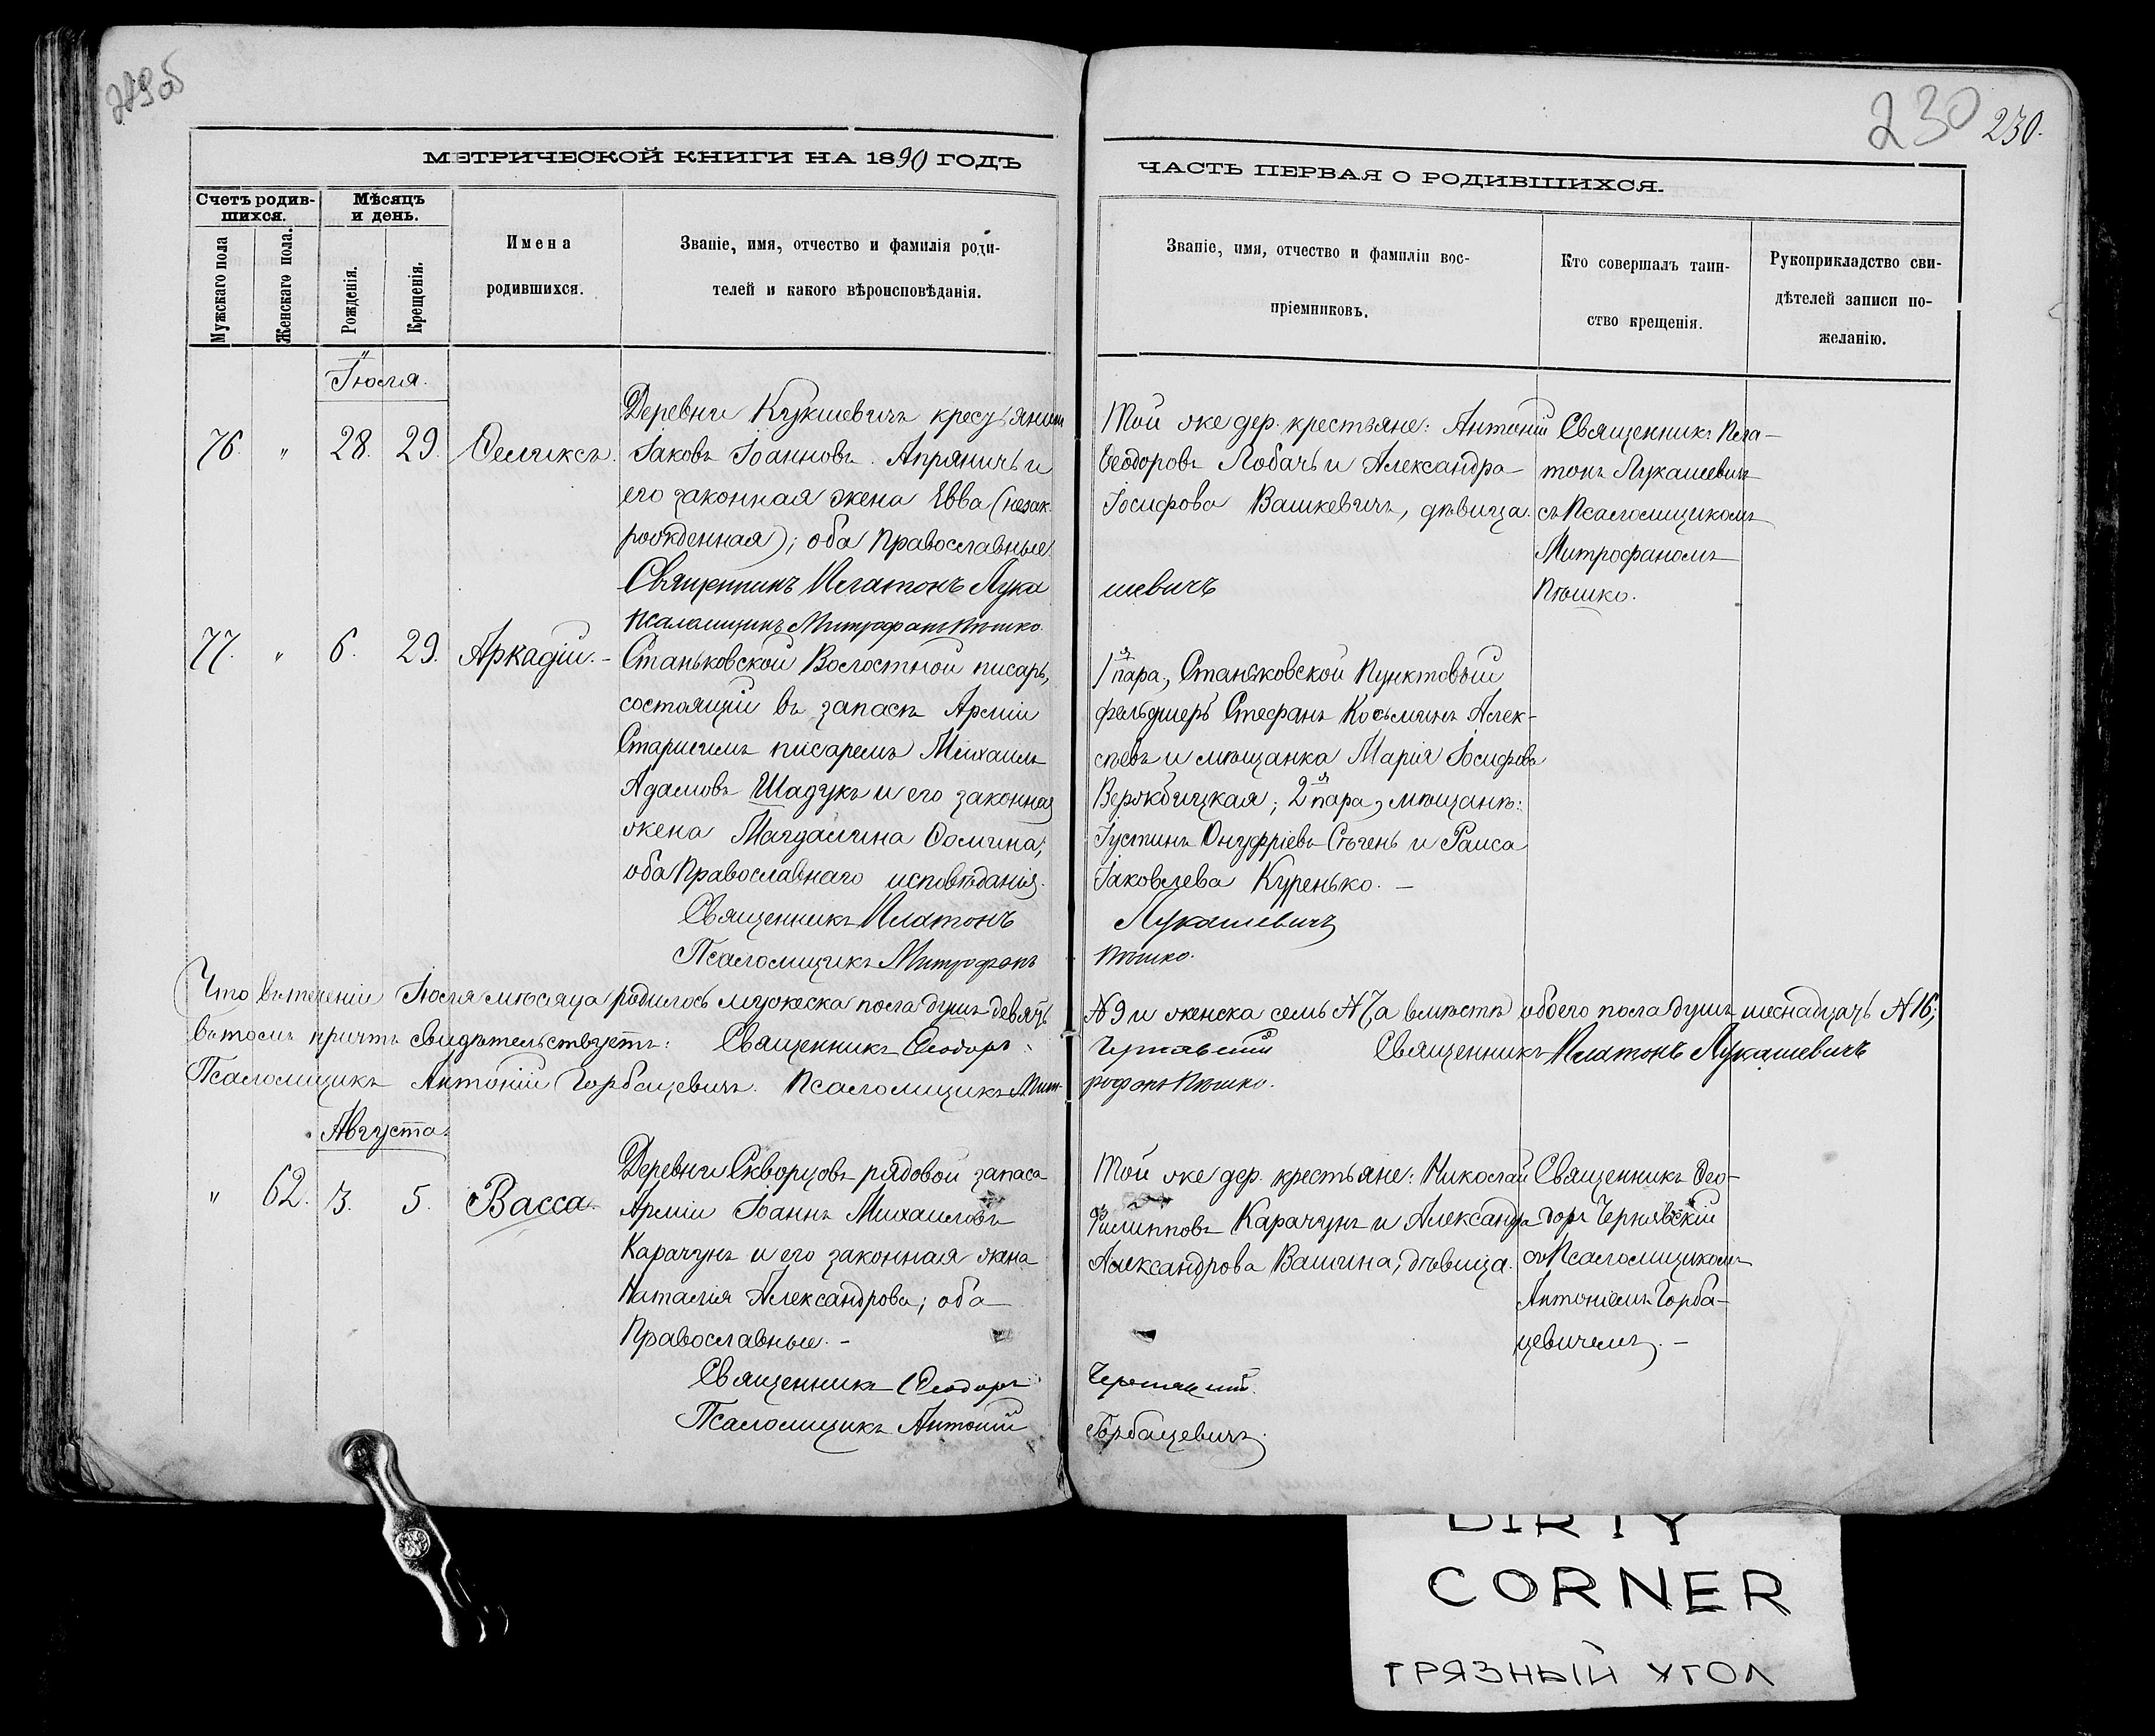 230 230.
МЕТРИЧЕСКОЙ КНИГИ НА 1890 ГОДЪ
ЧАСТЬ ПЕРВАЯ О РОДИВШИХСЯ.
Счетъ родив-
шихся.
Мѣсяцъ
и день.
Мужскаго пола
Женскаго пола.
Рожденія.
Крещенія.
Имена
родившихся.
Званіе, имя, отчество и фамилія роди-
телей и какого вѣроисповѣданія.
Званіе, имя, отчество и фамиліи вос-
пріемниковъ.
Кто совершалъ таин-
ство крещенія.
Рукоприкладство сви-
дѣтелей записи по-
желанію.
Іюля.
76. " 28. 29. Ѳеликсъ.
Деревни Кукшевичъ крестьянинъ
Іаковъ Іоанновъ Апряничъ и
его законная жена Евва (незак.
рожденная); оба Православные.
Священникъ Платонъ Лука
Псаломщикъ Митрофанъ Пюшко.
Той же дер. крестьяне: Антоній
Ѳеодоровъ Лобачъ и Александра
Іосифова Вашкевичъ, дѣвица.
шевичъ
Священникъ Пла-
тонъ Лукашевичъ
съ Псаломщикомъ
Митрофаномъ
Пюшко.
77. " 6. 29. Аркадій.-
Станьковской Волостной писарь,
состоящій въ запасѣ Арміи
Старшимъ писаремъ Михаилъ
Адамовъ Шадукъ и его законная
жена Магдалина Ѳомина;
оба Православнаго исповѣданія.
Священникъ Платонъ
Псаломщикъ Митрофанъ
1я пара, Станьковской Пунктовый
фельдшеръ Стефанъ Косьминъ Алек-
сѣевъ и мѣщанка Марія Іосифова
Вержбицкая; 2я пара, мѣщане:
Іустинъ Онуфріевъ Сѣчень и Раиса
Іаковлева Куренько. -
Лукашевичъ
Пюшко.
Что въ теченіи Іюля мѣсяца родилось мужеска пола душъ девять № 9 и женска семь № 7, а вмѣстѣ обоего пола душъ шеснадцать № 16;
въ томъ причтъ свидѣтельствуетъ: Священникъ Ѳеодоръ Чернявскій Священникъ Платонъ Лукашевичъ
Псаломщикъ Антоній Горбацевичъ. Псаломщикъ Митрофанъ Пюшко.
Августа.
" 62. 3. 5. Васса.
Деревни Скворцовъ рядовой запаса
Арміи Іоаннъ Михаиловъ
Карачунъ и его законная жена
Наталія Александрова; оба
Православные. -
Священникъ Ѳеодоръ
Псаломщикъ Антоній
Той же дер. крестьяне: Николай
Филипповъ Карачунъ и Александра
Александрова Вашина, дѣвица.
Чернявскій.
Горбацевичъ.
Священникъ Ѳео-
доръ Чернявскій
съ Псаломщикомъ
Антоніемъ Горба-
цевичемъ. -
DIRTY
CORNER
ГРЯЗНЫЙ УГОЛ